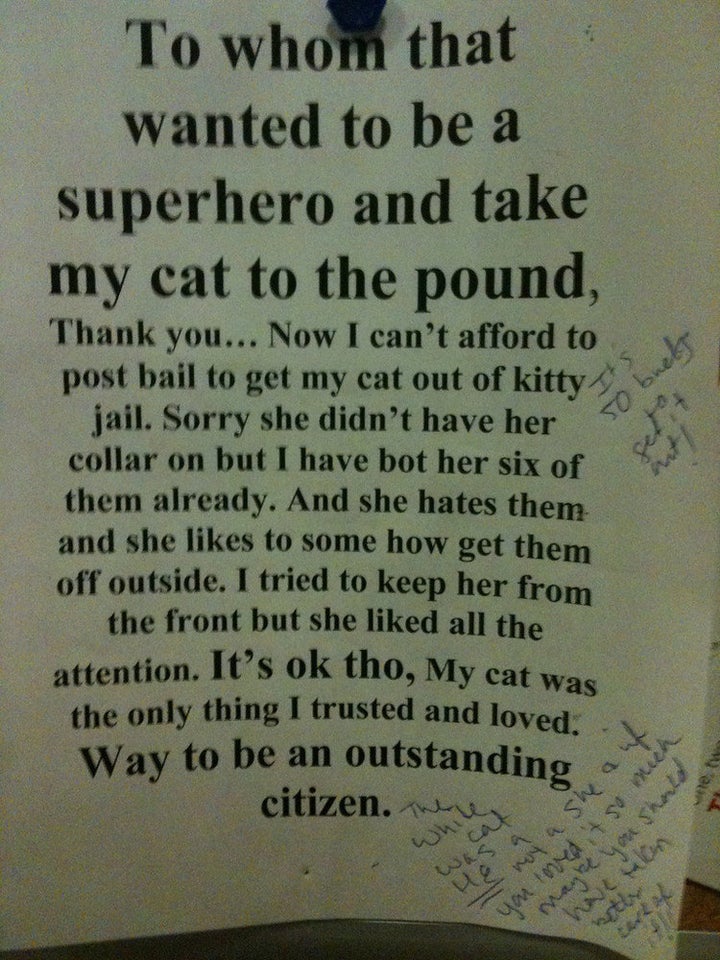 To whom that
wanted to be a
superhero and take
my cat to the pound,
Thank you... Now I can't afford to
post bail to get my cat out of kitty
jail. Sorry she didn't have her
collar on but I have bot her six of
them already. And she hates them
and she likes to some how get them
off outside. I tried to keep her from
the front but she liked all the
attention. It's ok tho, My cat was
the only thing I trusted and loved.
Way to be an outstanding
citizen.
It's
50 bucks
to
get it
out!
The
white
cat
was a
HE not a she & if
you loved it so much
maybe you should
have taken
better
care of
it!!!